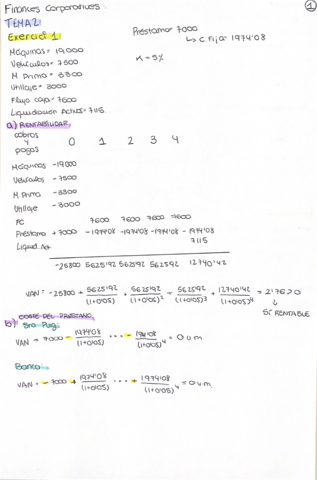 Finances Corporatives
1
TEMA 2
Exercici 1
Préstamo = 7000
↳ C. Fija = 1974'08
Máquinas = 19000
K = 5%
Vehículos = 7500
M. Prima = 3300
Utillaje = 3000
Flujo caja = 7600
Liquidación Activos = 7115
a) RENTABILIDAD
cobros y pagos 0 1 2 3 4
Máquinas -19000
Vehículos -7500
M. Prima -3300
Utillaje -3000
FC 7600 7600 7600 7600
Préstamo +7000 -1974'08 -1974'08 -1974'08 -1974'08
Liquid. Act 7115
-25800 5625'92 5625'92 5625'92 12740'92
VAN = -25800 + 5625'92/(1+0'05) + 5625'92/(1+0'05)² + 5625'92/(1+0'05)³ + 12740'92/(1+0'05)⁴ = 2'76 > 0
↓
SÍ RENTABLE
COSTE DEL PRÉSTAMO
b)
VAN = 7000 - 1974'08/(1+0'05) ... - 1974'08/(1+0'05)⁴ = 0 u.m.
Banco:
VAN = -7000 + 1974'08/(1+0'05) ... + 1974'08/(1+0'05)⁴ = 0 u.m.